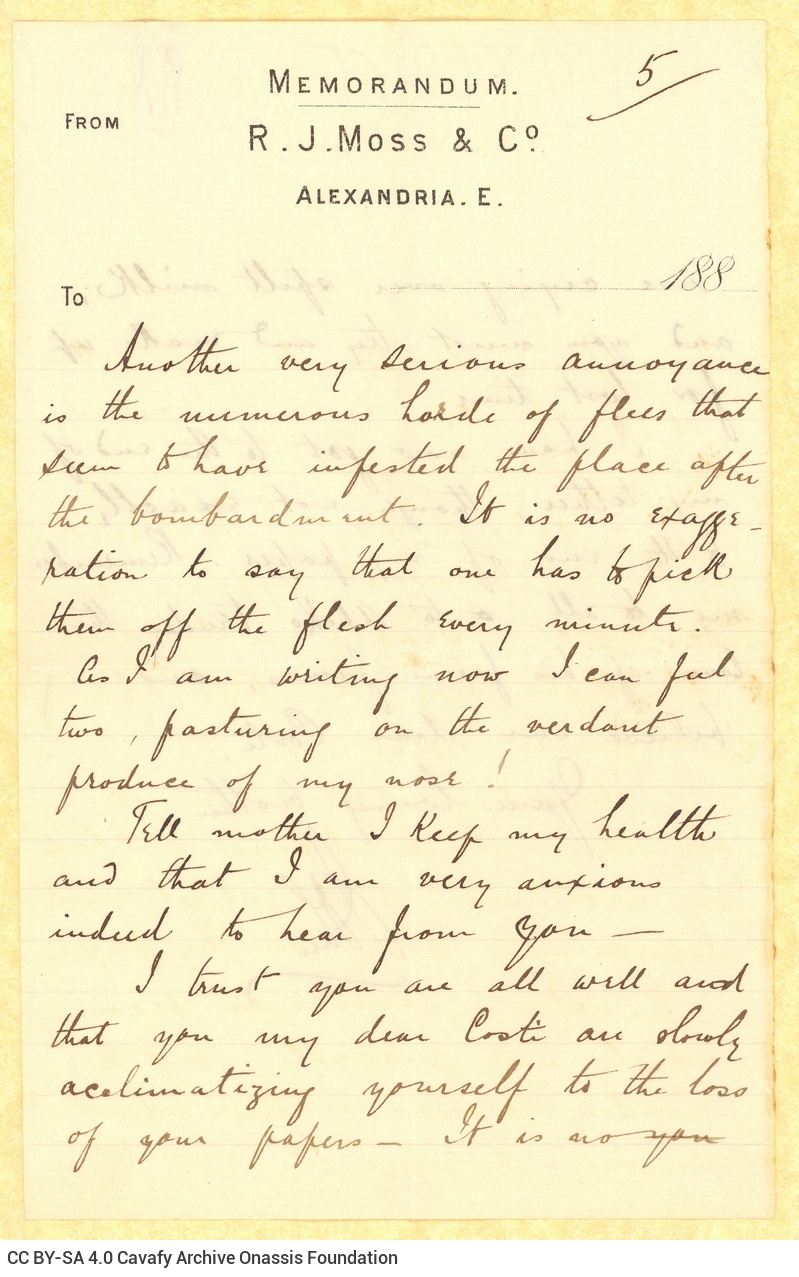 MEMORANDUM.
5
FROM
R. J. MOSS & Cº
ALEXANDRIA. E.
188
To
Another very serious annoyance
is the numerous horde of flees that
seem to have infested the place after
the bombardment. It is no exagge-
ration to say that one has to pick
them off the flesh every minute.
As I am writing now I can feel
two, pasturing on the verdant
produce of my nose!
Tell mother I keep my health
and that I am very anxious
indeed to hear from you —
I trust you are all well and
that you my dear Costi are slowly
acclimatizing yourself to the loss
of your papers — It is no you
CC BY-SA 4.0 Cavafy Archive Onassis Foundation